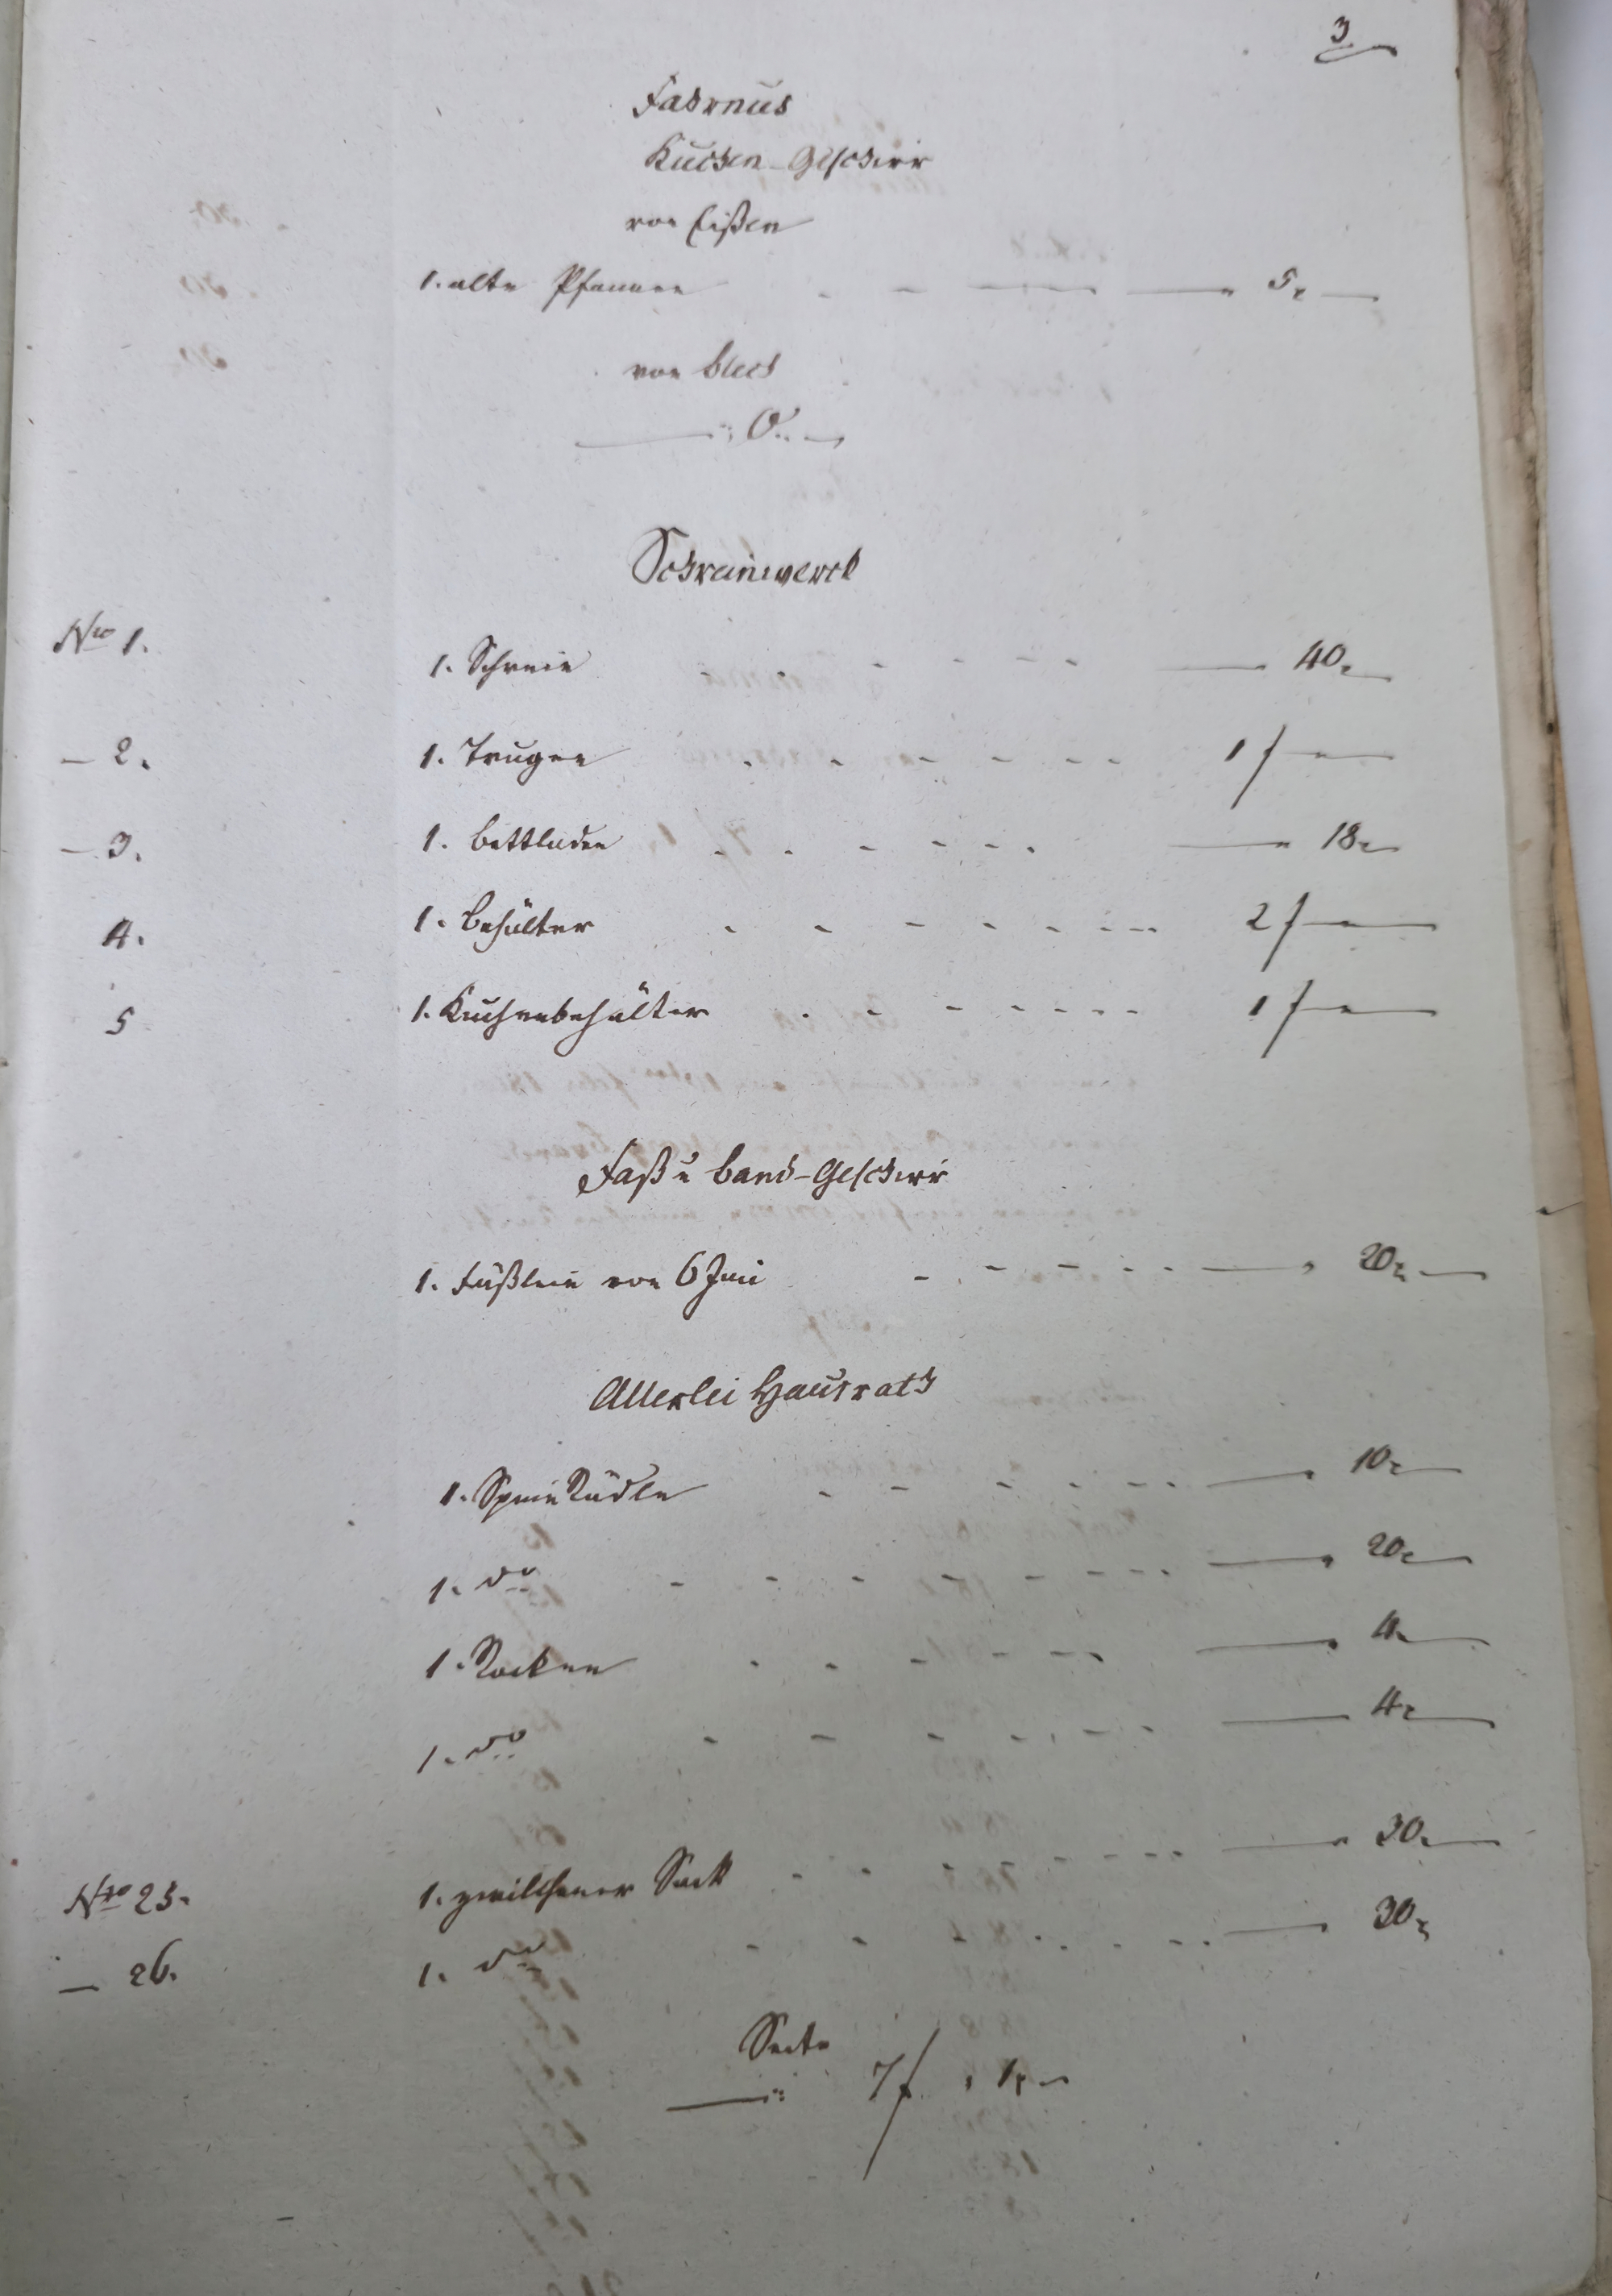 3
Fahrnus
Kuchen-Geschirr
von Eißen
1. alte Pfannen - - - 5x
von blech
0.
Schreinwerck
Nro 1. 1. Schrein - - - 40x
- 2. 1. Trugen - - - 1 f -
- 3. 1. bettladen - - - 18x
4. 1. behälter - - - 2 f -
5 1. Kuchenbehälter - - - 1 f -
Faß u band-Geschirr
1. Fäßlein von 6 Imi - - - 20x
Allerlei Hausrath
1. Spinn Rädle - - - 10x
1. do - - - 20x
1. Rocken - - - 4x
1. do - - - 4x
Nro 25. 1. zwilchener Sack - - - 30x
- 26. 1. do - - - 30x
Seite
7 f 1x